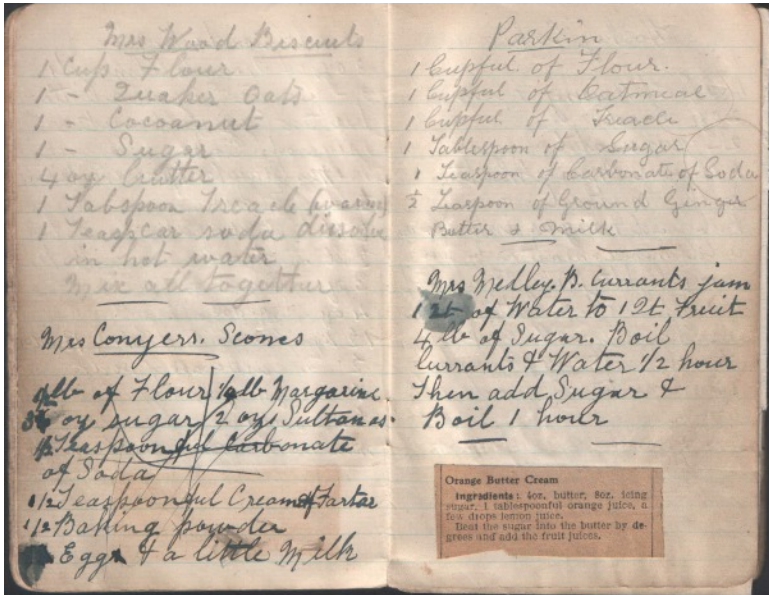 Mrs Wood Biscuits
1 Cup Flour
1 - Quaker Oats
1 - Cocoanut
1 - Sugar
4 oz butter
1 Tabspoon Treacle
1 Teasp car soda dissolve
in hot water
Mix all together
Mrs Conyers. Scones
lb of Flour 1/4 lb Margarine
oz sugar 2 oz Sultanas.
Teaspoonful Carbonate
of Soda
1/2 Teaspoonful Cream of Tartar
1/2 Baking powder
Eggs & a little Milk
Parkin
1 Cupful of Flour.
1 Cupful of Oatmeal
1 Cupful of Treacle
1 Tablespoon of Sugar
1 Teaspoon of Carbonate of Soda
1/2 Teaspoon of Ground Ginger
Butter & Milk
Mrs Medley. B. Currants jam
1 2t of Water to 1 2t Fruit
4 lb of Sugar. Boil
Currants & Water 1/2 hour
Then add Sugar &
Boil 1 hour
Orange Butter Cream
Ingredients: 4oz. butter, 8oz. icing
sugar, 1 tablespoonful orange juice, a
few drops lemon juice.
Beat the sugar into the butter by de-
grees and add the fruit juices.